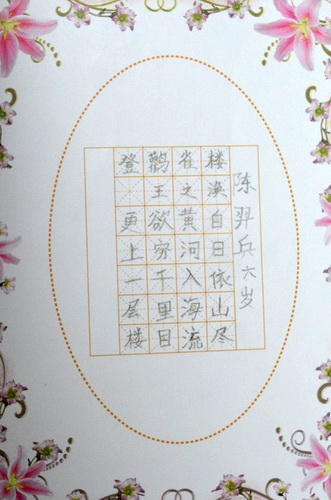 登鹳雀楼
王之涣
白日依山尽
黄河入海流
欲穷千里目
更上一层楼
陈羿兵六岁